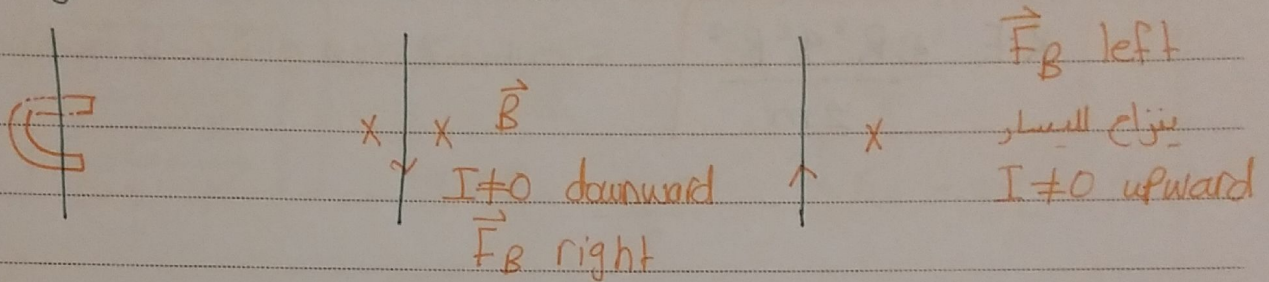 x x B⃗
I≠0 downward
F⃗B right
x
F⃗B left
ينزاح لليسار
I≠0 upward